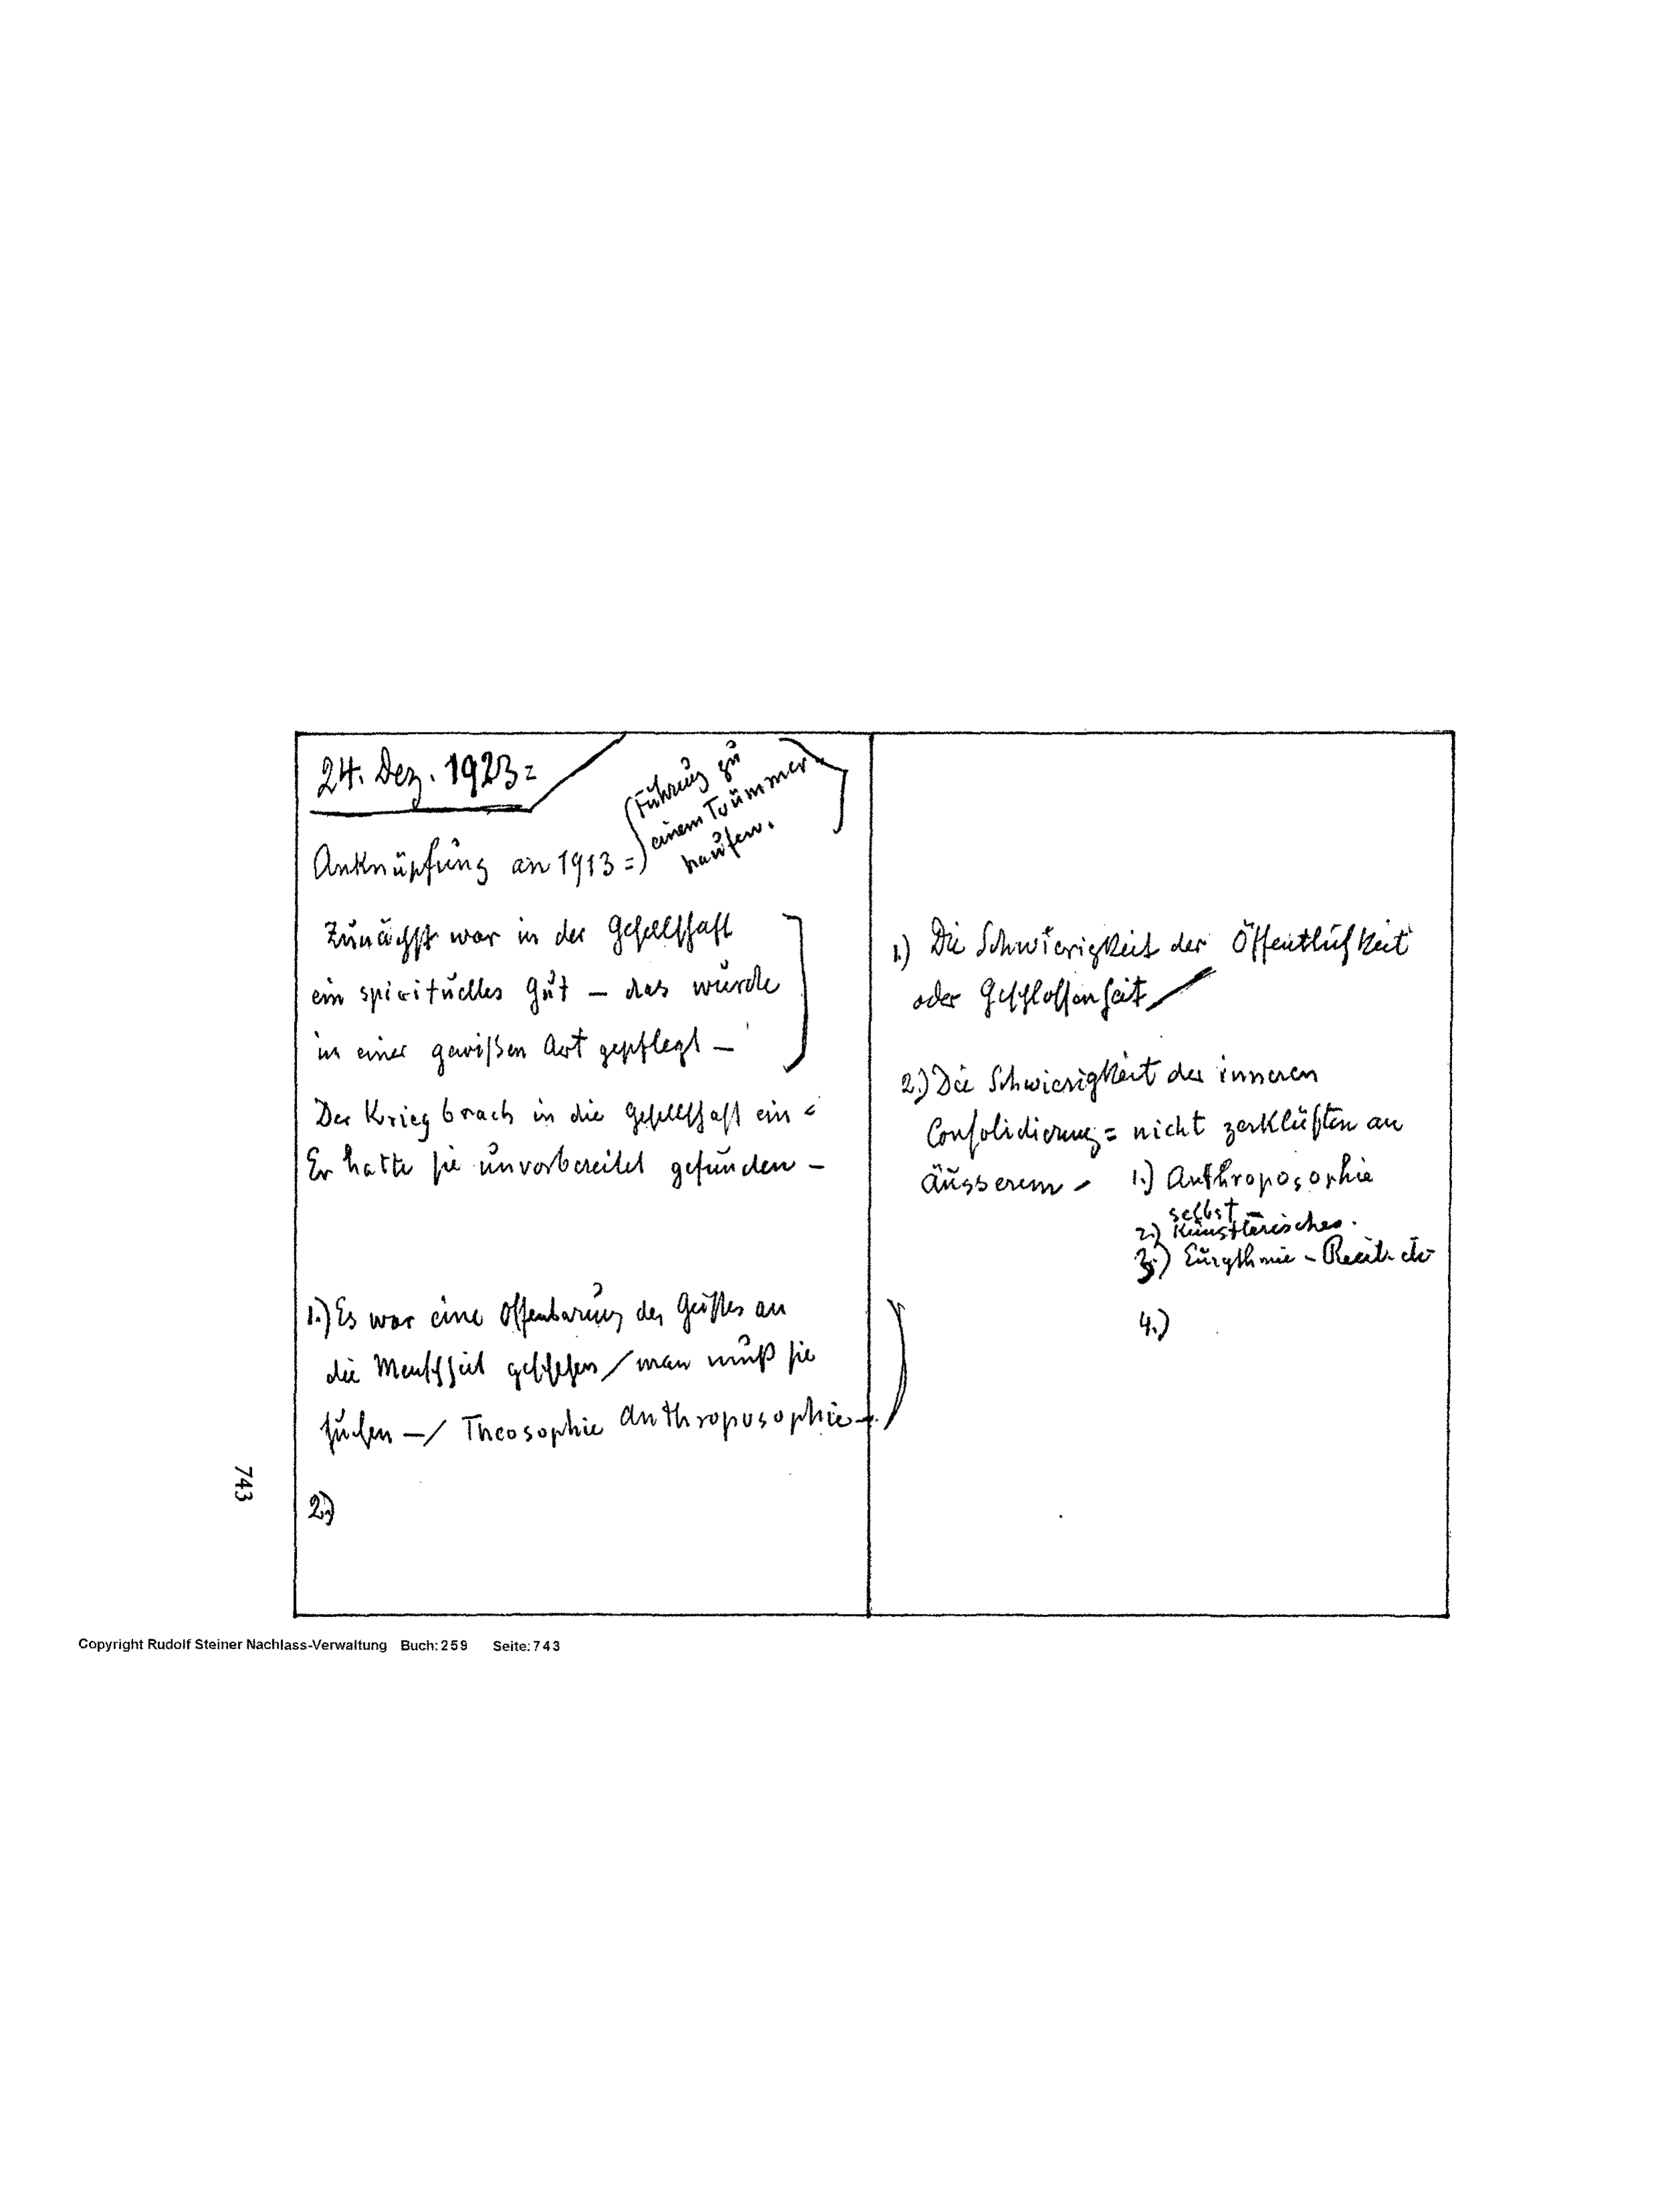 24. Dez. 1923 =
Führung zu
einem Trümmer-
haufen.
Anknüpfung an 1913 =
Zunächst war in der Gesellschaft
ein spirituelles Gut – das wurde
in einer gewißen Art gepflegt –
Der Krieg brach in die Gesellschaft ein =
Er hatte sie unvorbereitet gefunden –
1.) Es war eine Offenbarung des Geistes an
die Menschheit geschehen / man muß sie
suchen – / Theosophie Anthroposophie –.
2.)
1.) Die Schwierigkeit der Öffentlichkeit
oder Geschlossenheit /
2.) Die Schwierigkeit der inneren
Consolidierung = nicht zerklüften an
äusserem –
1.) Anthroposophie
selbst –
2.) Künstlerisches.
3.) Eurythmie – Recit. etc
4.)
743
Copyright Rudolf Steiner Nachlass-Verwaltung Buch: 259 Seite: 743